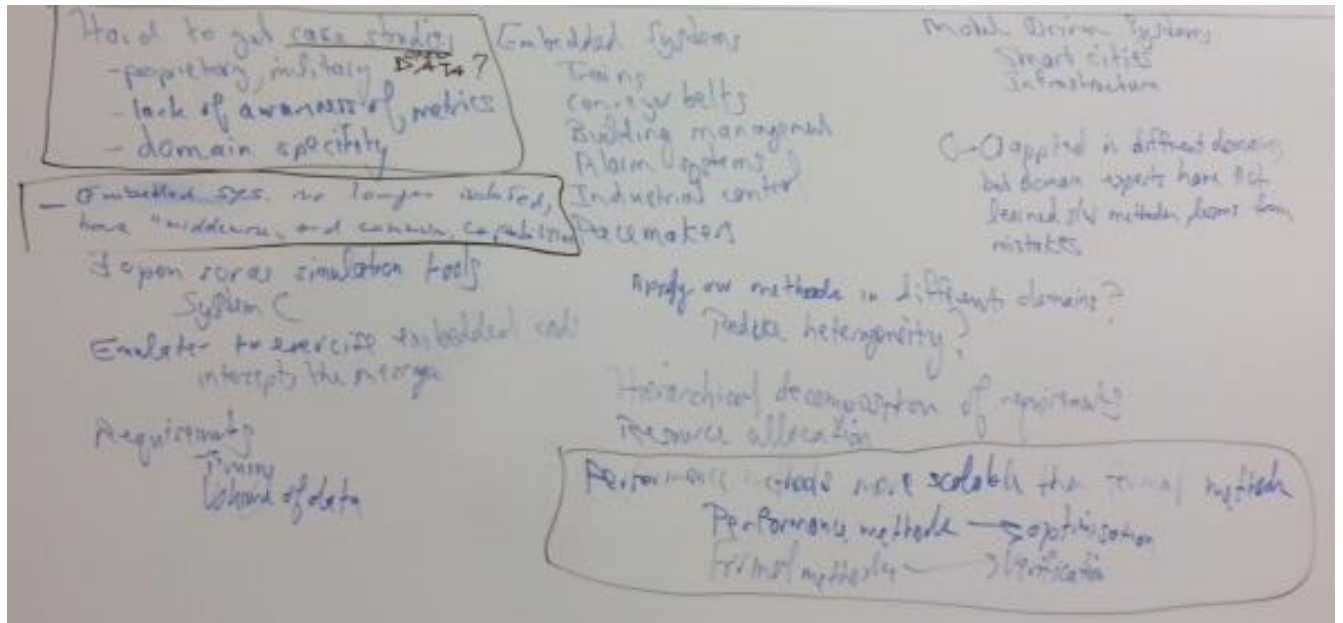 Hard to get case studies
- propietary, military DATA?
- lack of awareness of metrics
- domain specifity
- Embedded sys. no longer isolated,
have "middleware, and common capabilities
open simulation tools
System C
Emulator to exercise embedded code
intercepts the message
Requirements
Timing
Volume of data
Embedded Systems
Trains
conveyor belts
Building management
Alarm systems
Industrial control
Pacemakers
Model Driven Systems
Smart cities
Infrastructure
O-O applied in different domains
but domain experts have not
learned s/w methods, from
mistakes
Apply our methods in different domains?
Reduce heterogeneity?
Hierarchical decomposition of requirements
Resource allocation
Performance methods more scalable than formal methods
Performance methods → optimisation
Formal methods → Verification